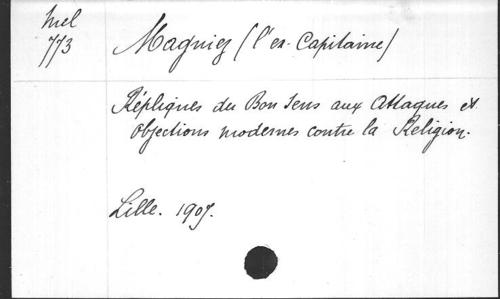 Mel
773
Magniez (l'ex-Capitaine)
Répliques du Bon Sens aux Attaques et
Objections modernes contre la Religion.
Lille. 1907.